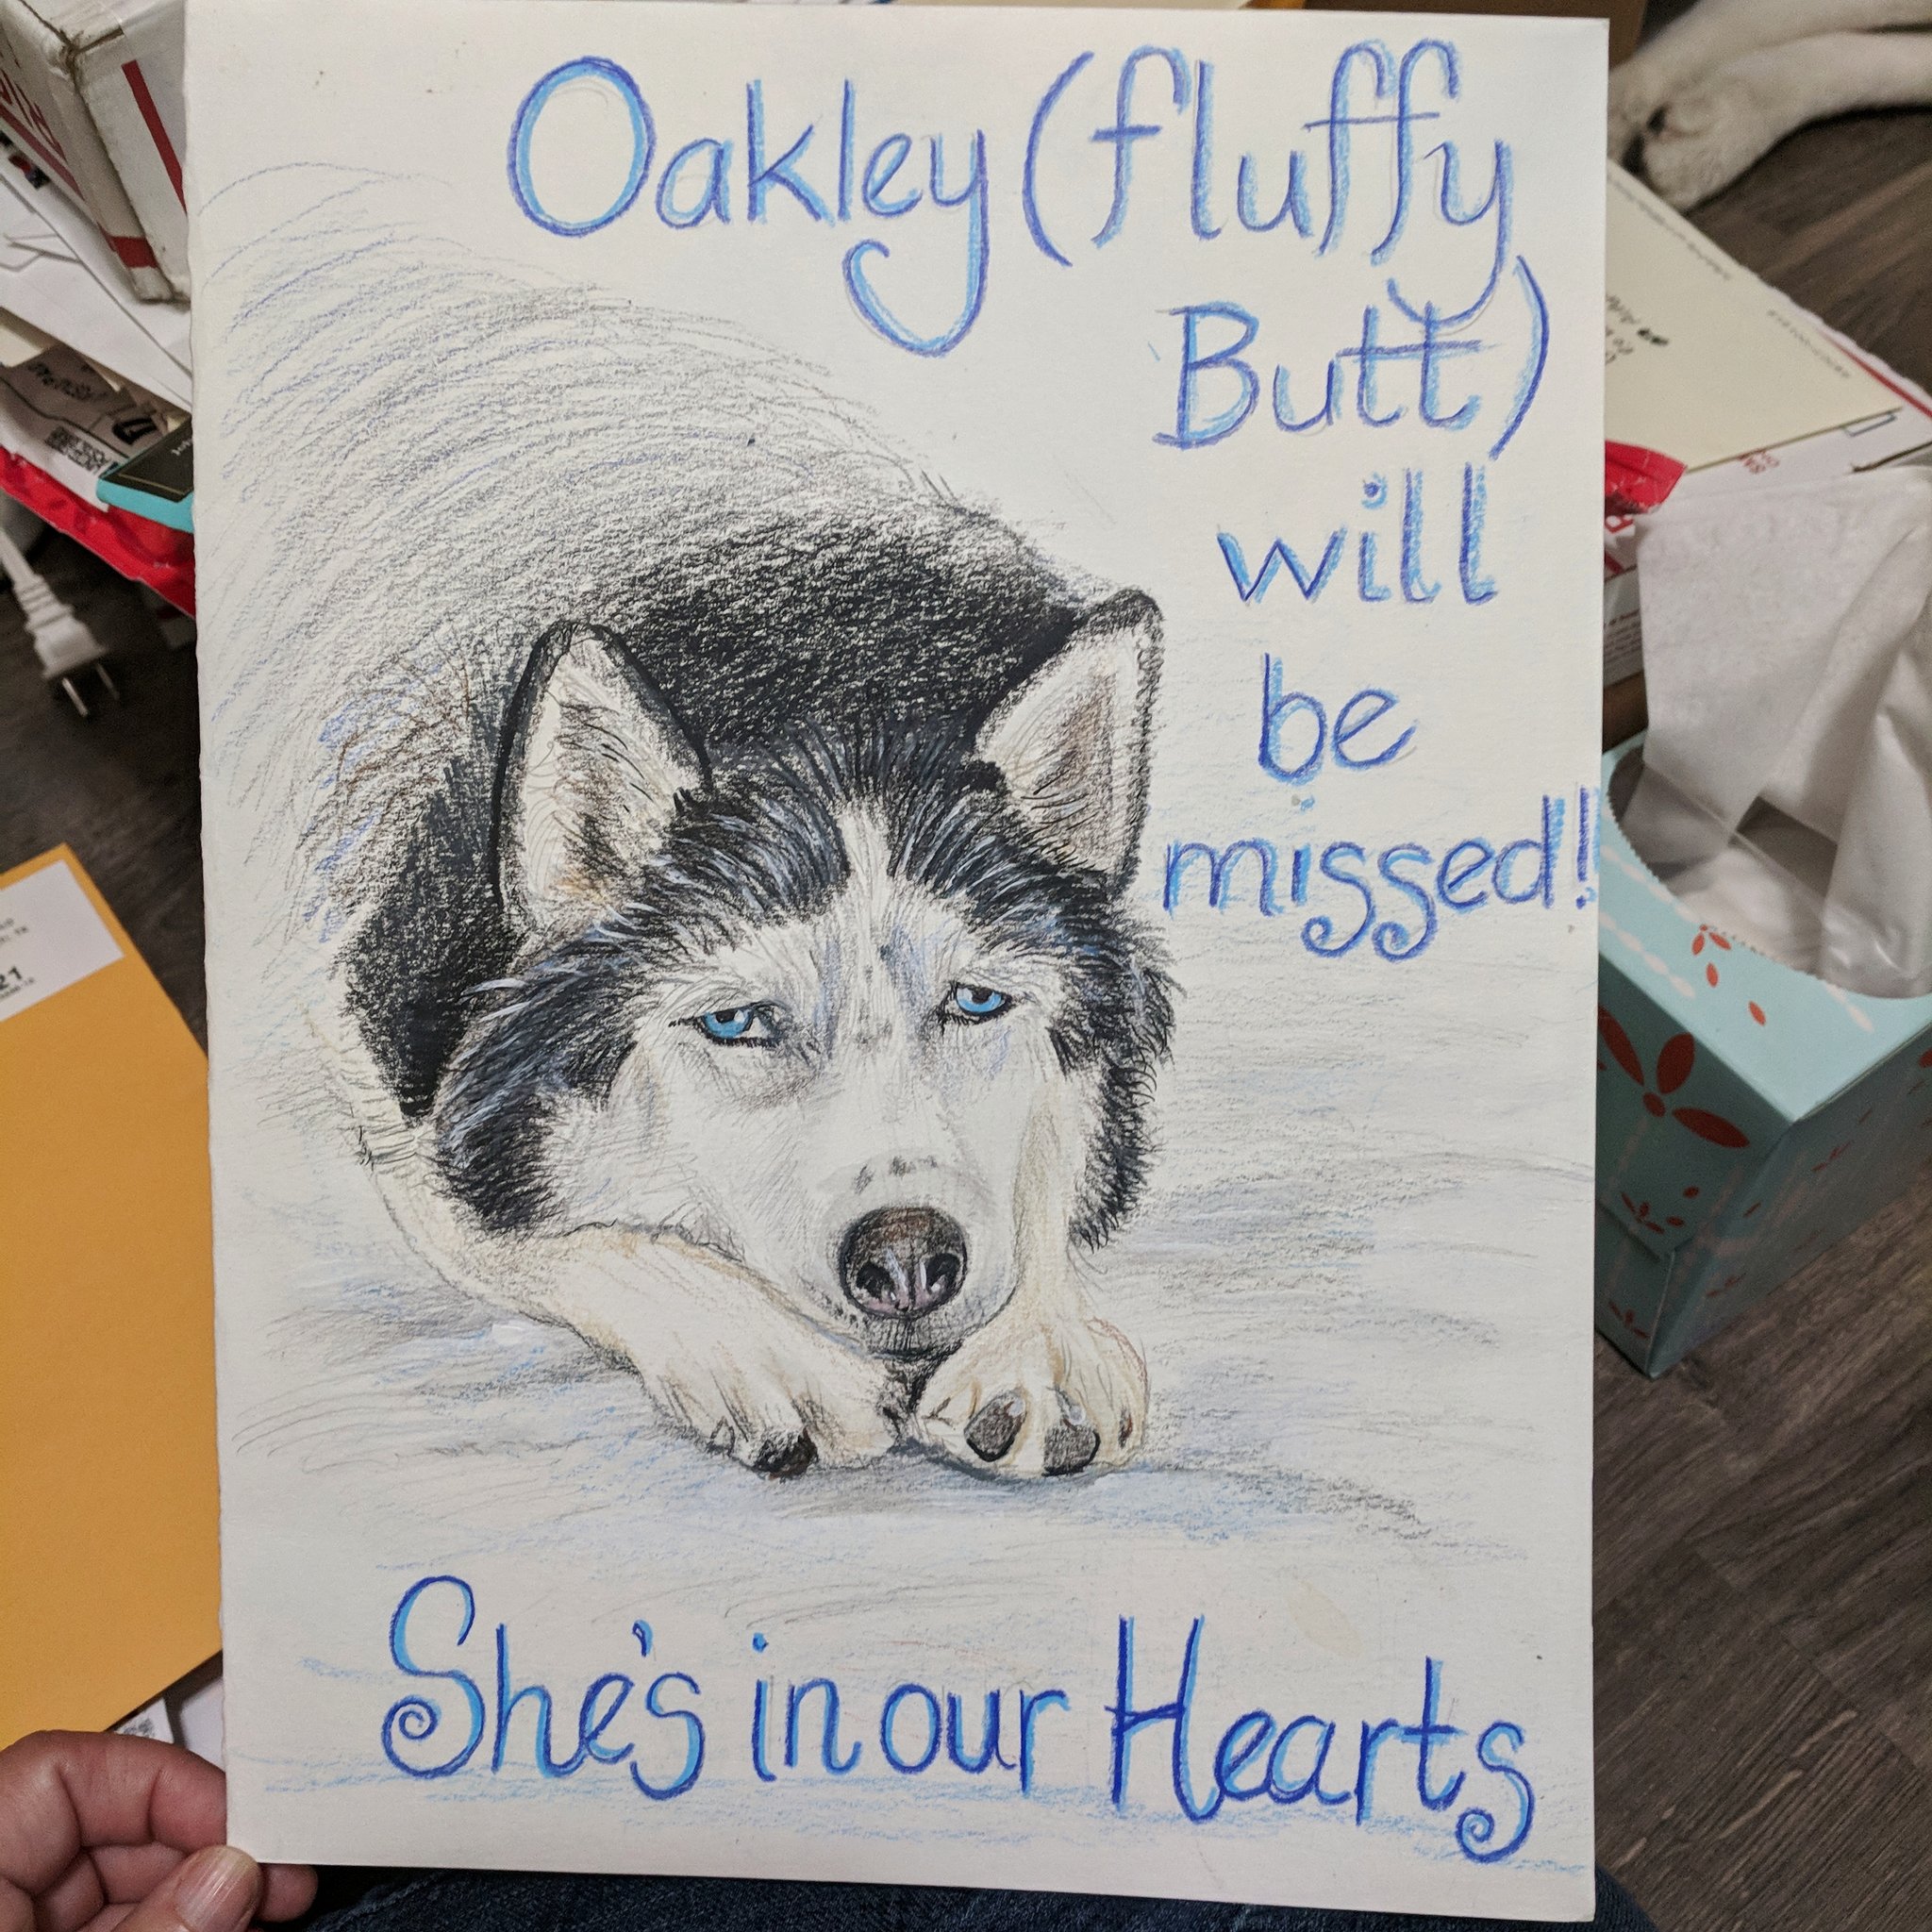 Oakley (fluffy
Butt)
will
be
missed!
She's in our Hearts
21